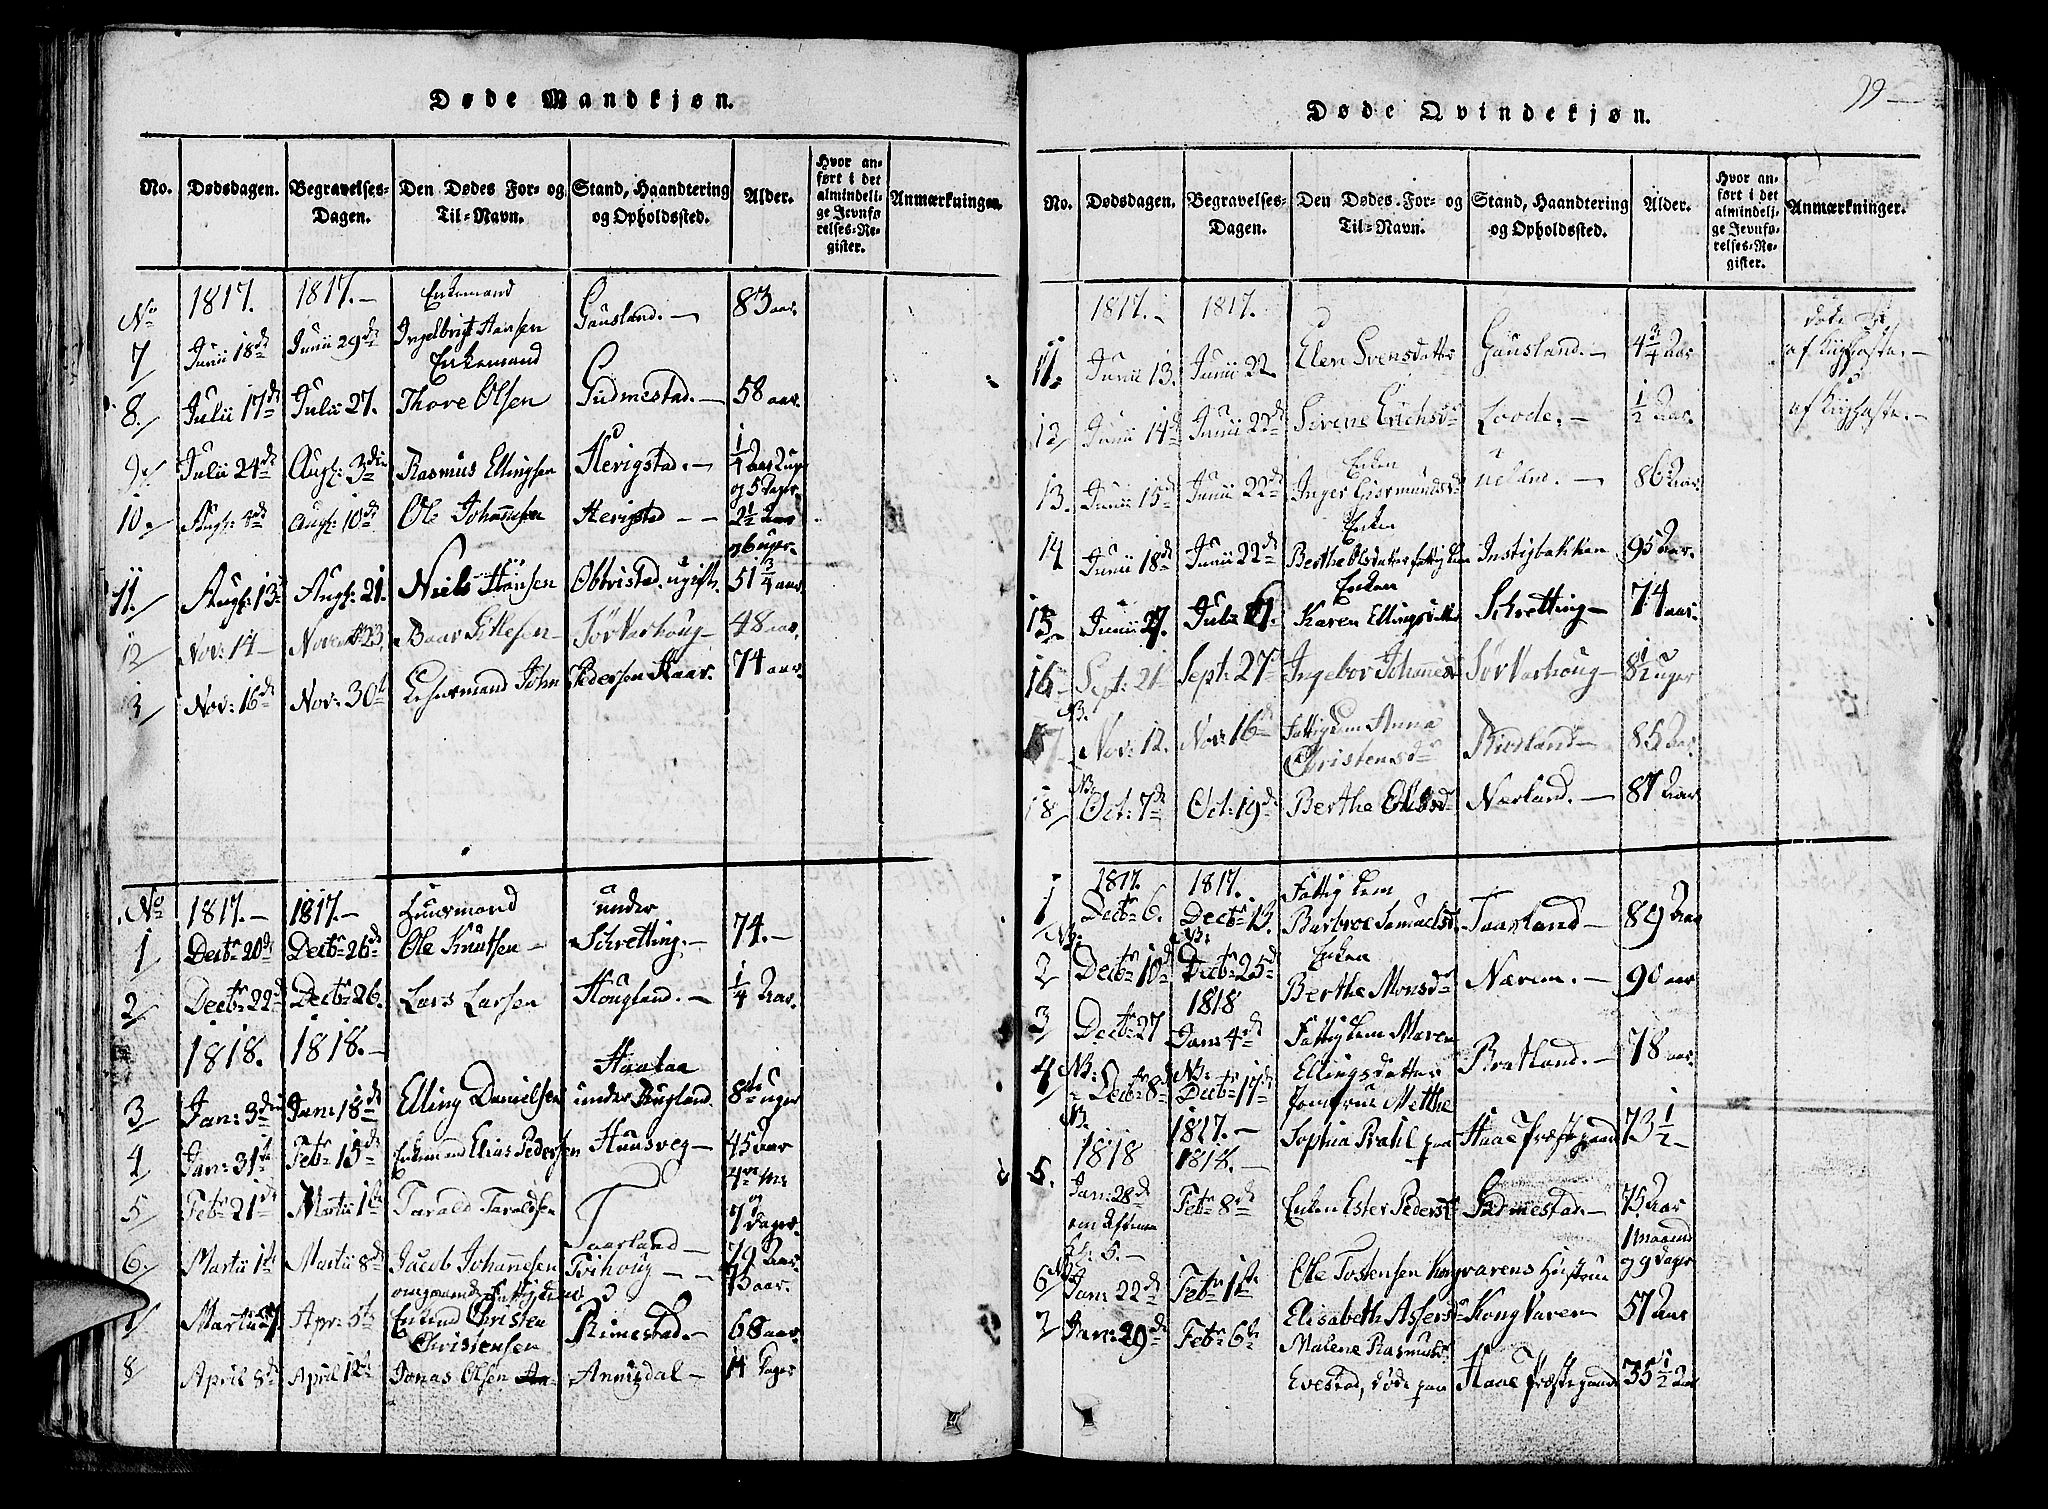 Døde Mandkjøn.
No. Dødsdagen. Begravelses-Dagen. Den Dødes For- og Til-Navn. Stand, Haandtering og Opholdssted. Alder. Hvor anført i det almindelige Jevnførelses-Register. Anmærkninger.
No 1817. 1817.- Enkemand
7 Junii 18de Junii 29de Ingelbrigt Hansen Gausland.- 83 aar.
Enkemand
8. Julii 17de Julii 27. Thore Olsen Gudmestad.- 58 aar.
9. Julii 24de Augs: 3die Rasmus Ellingsen Herigstad.- 1/4 Aar
og 5 Dager.
10. Augs: Augs: 10de Ole Johannesen Herigstad - - 2 1/2 Aar
og 6 uger.
11. Augs: 13de Augs: 21. Niels Hansen Obrestad. ugift. 51 3/4 aar.
12 Nov: 14- Novemb 23. Sør Varhoug- 48 aar.
13 Nov: 16de Nov: 30te John Pedersen Haar. 74 aar.
No 1817.- 1817.- Huusmand under
1 Decbr 20de Decbr 26de Ole Knutsen- Schretting.- 74.-
2 Decbr 22de Decbr 26. Lars Larsen Hougland.- 1/4 Aar.
1818. 1818.-
3 Jan: 3die Jan: 18de Elling Danielsen under Fugland. 8te uger
4 Jan: 31te Febr 15de Enkemand Elias Pedersen Huusveg- 45 aar
5 Febr 21de Martii 1ste Tarald Taraldsen Taarland- og 7 Dager
6. Martii 1ste Martii 8de Jacob Johannesen Tvihoug- - 79 Aar.
omgaaende Fattiglem 73 aar.
7 Martii Apr: 5te Enkemd Christen
Christensen Rimestad.- 68 aar.
8 April 8de April 12te Jonas Olsen Annisdal- 14 Dager
99
Døde Qvindekjøn.
No. Dødsdagen. Begravelses-Dagen. Den Dødes For- og Til-Navn. Stand, Haandtering og Opholdssted. Alder. Hvor anført i det almindelige Jevnførelses-Register. Anmærkninger.
1817.- 1817. døde
11. Junii 13. Junii 22 Elen Svensdatter Gausland.- 4 3/4 Aar af Kighoste.-
12 Junii 14de Junii 22de Sirene Erichsdr Loode.- 1/2 Aar. af Kighoste.-
Enken
13. Junii 15de Junii 22de Inger Gormundsdr Ueland.- 86 Aar.
Enken
14 Junii 18de Junii 22de Berthe Olsdatter fattiglem Instigbakken 95 Aar.
Enken
15 Junii 27. Julii Karen Ellingsdatter Schretting- 74 aar.
16 Sept: 21 Sept: 27de Ingebor Johannesdr Sør Varhoug- 8 1/2 uger
NB.
17 Nov: 12. Nov: 16de Fattiglem Anna
Christensdr Riidland- 85 Aar.
NB.
18 Oct: 7de Oct: 19de Berthe Nærland.- 87 Aar
1817. 1817. Fattig Lem
1 Decbr 6. Decbr 13. Barbroe Samuelsdr Taarland- 89 Aar
NB. NB. Enken
2 Decbr 10de Decbr 25de Berthe Monsdr Nærem.- 90 aar
1818
3 Decbr 27 Jan: 4de Fattiglem Maren
Ellingsdatter Bratland.- 78 aar
4 NB: Decbr 8de NB: Decbr 17de Jomfrue Metthe
NB. 1817.- Sophia Prahl paa Haae Præstegaard 73 1/2
1818 1818.-
5. Jan: 28de Febr 8de Enken Ester Pedersdr Gudmestad.- 75 Aar
om Aftenen 1 maaned
Kl: 6.- og 9 Dager
6 Jan: 22de Febr 1ste Ole Tostensen Kongvarens Hustrue
Elisabeth Assersdr Kongvaren 57 Aar
7 Jan: 29de Febr 6te Malene Rasmusdr
Evestad, døde paa Haae Præstegaard 35 1/2 Aar